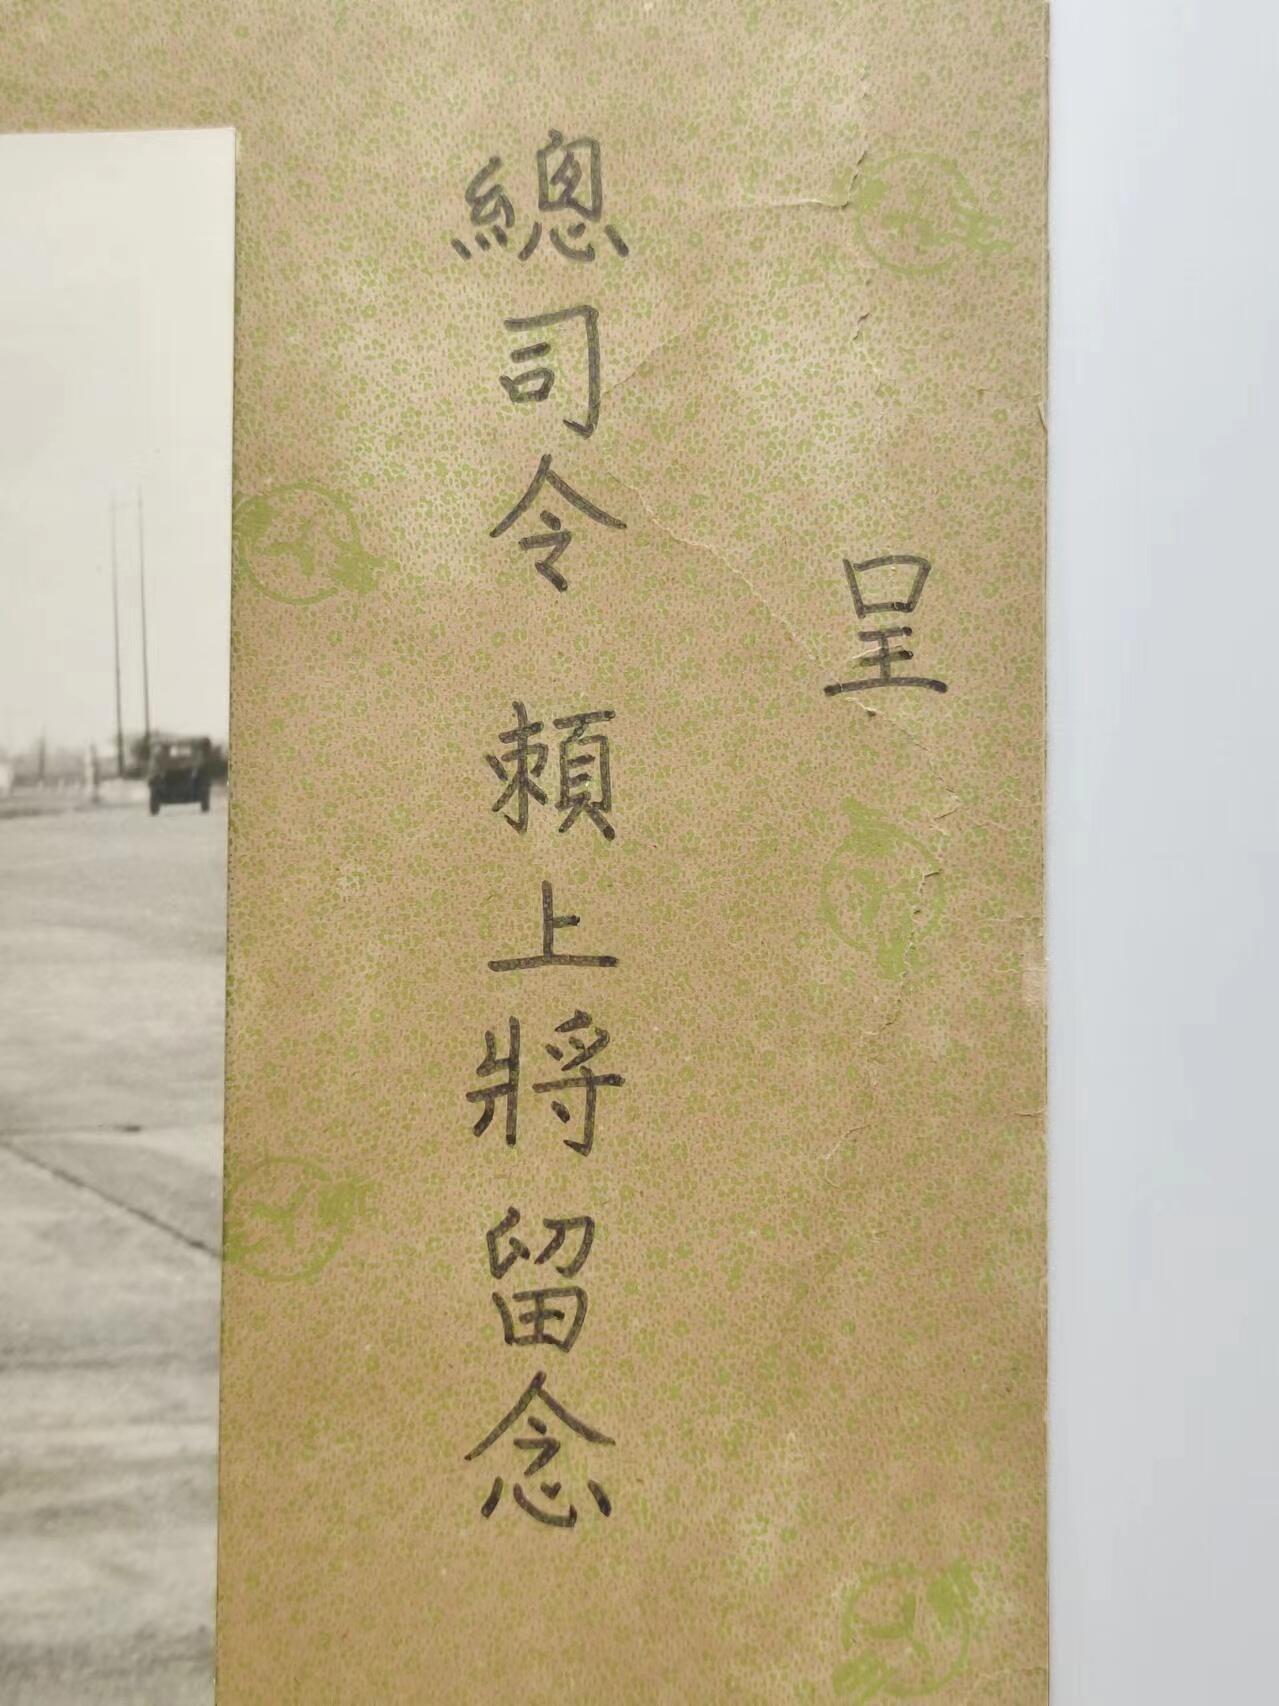 呈
總司令 賴上將留念